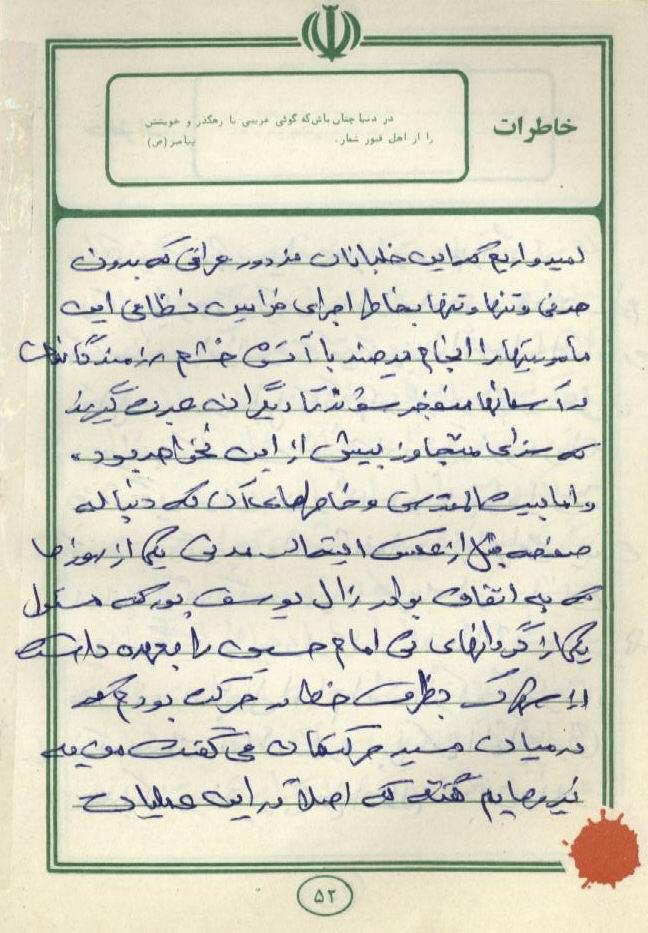 خاطرات
در دنیا چنان باش که گوئی غریبی یا رهگذر و خویشتن
را از اهل قبور شمار. پیامبر (ص)
امیدواریم که این خلبانان مزدور عراقی که بدون
هدفی و تنها و تنها بخاطر اجرای فرامین نظامی این
مأموریتها را انجام میدهند با آتش خشم رزمندگانمان
در آسمانها منفجر شوند تا دیگران عبرت گیرند
که سزای متجاوز بیش از این نخواهد بود.
و اما بیت المقدس و خاطره‌های آن که دنباله
صفحه قبل از عکس
یکی از روزها
که به اتفاق برادر زال یوسف پور که مسئول
یکی از گردانهای امام حسین را بعهده داشت
از شهرک بطرف خط در حرکت بودیم که
در میان مسیر حرکتمان می گفت من به
نیروهایم گفتم که اصلاً در این عملیات
۵۲